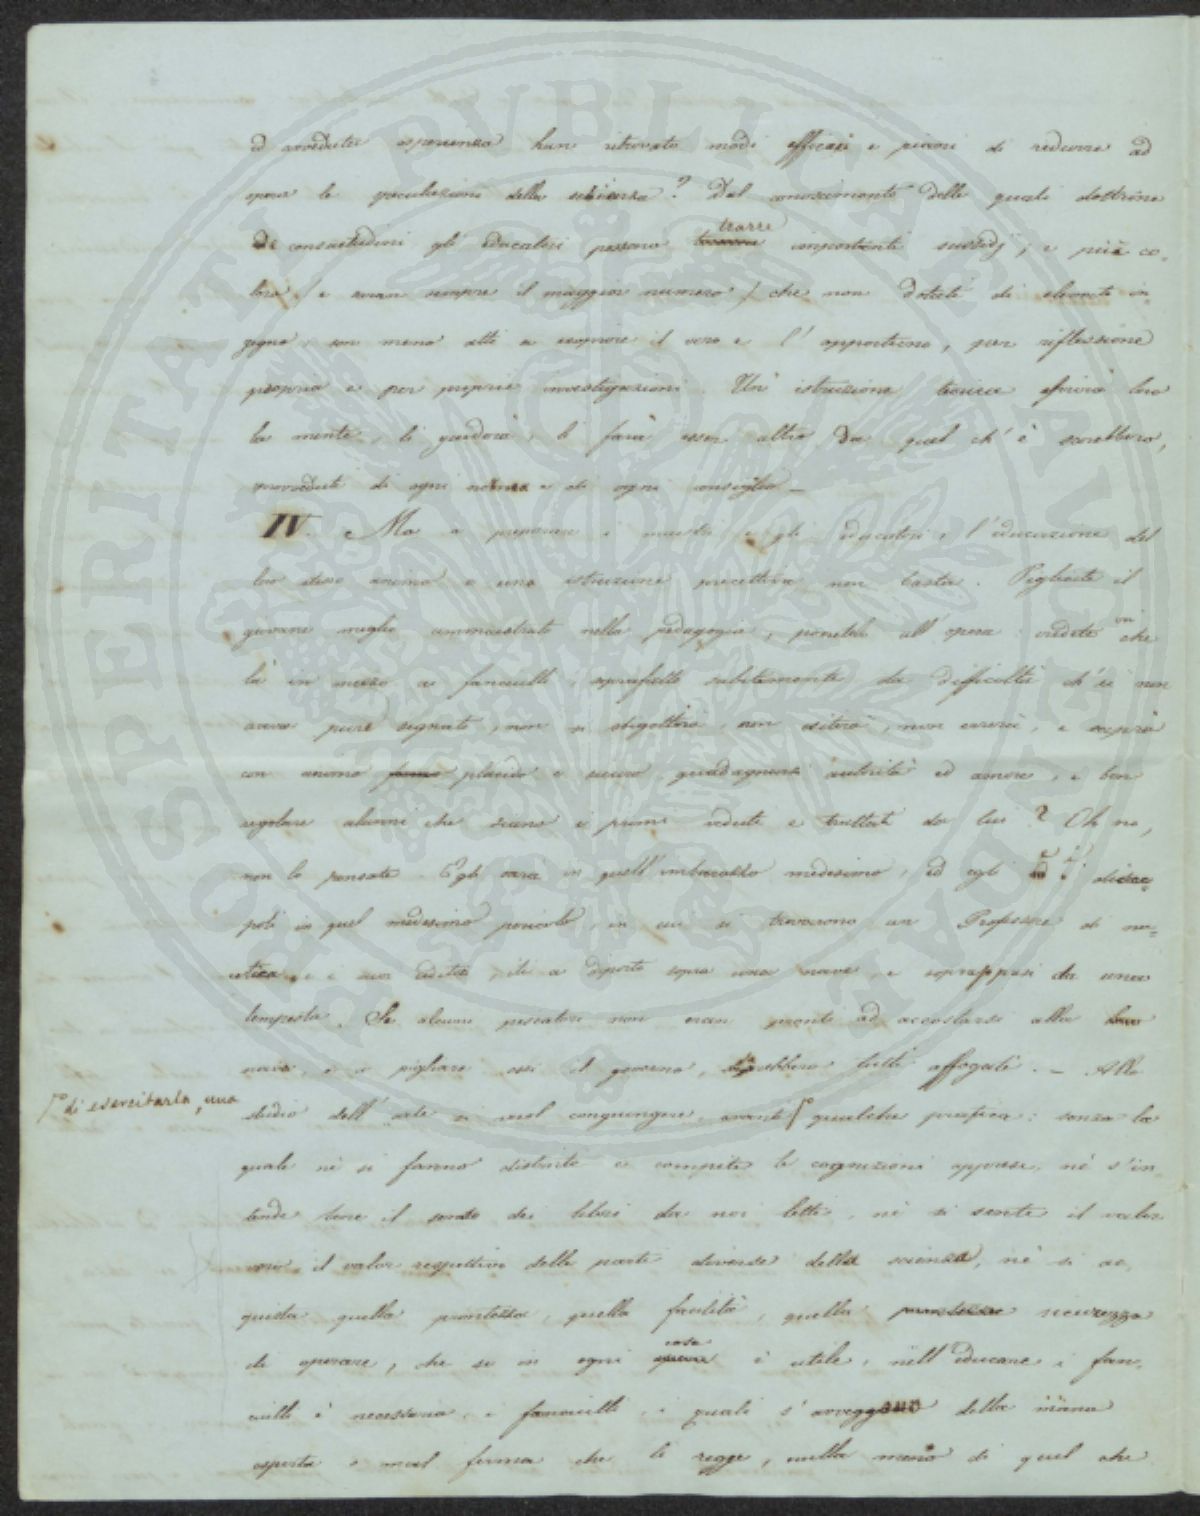 ed avveduta esperienza han ritrovato modi efficaci e sicuri di ridurre ad
opera le speculazioni della scienza? Dal conoscimento delle quali dottrine
e consuetudini gli educatori possono trarre importanti sussidj, e più co-
loro (e saran sempre il maggior numero) che non dotati di elevato in-
gegno, son meno atti a scoprire il vero e l'opportuno, per riflessione
propria e per proprie investigazioni. Un' istruzione loro
la mente, li guiderà, li farà esser altro da quel ch' è sarebbero,
provveduti di ogni e di ogni consiglio —
IV. Ma a preparare i maestri e gli educatori, l'educazione del
loro stesso animo e una istruzione precettiva non basta. Pigliate il
giovane meglio ammaestrato nella pedagogia, ponetelo all' opera: credete voi che
là in mezzo ai fanciulli, soprafatto subitamente da difficoltà ch' ei non
aveva pure sognate, non si sbigottirà, non esiterà, non errerà, e saprà
con animo placido e sicuro guadagnarsi autorità ed amore, e ben
regolare alunni che siano i primi veduti e trattati da lui? Oh no,
non lo pensate. Egli sarà in quell' imbarazzo medesimo, ed egli e i disce-
poli in quel medesimo pericolo, in cui si trovarono un Professore di na-
utica, e i suoi uditori, iti a diporto sopra una nave, e soprappresi da una
tempesta. Se alcuni pescatori non eran pronti ad accostarsi alla
nave, e a pigliare essi il governo, sarebbero tutti affogati. — Allo
di esercitarla, una
studio dell' arte si vuol congiungere, avanti qualche pratica: senza la
quale nè si fanno distinte e compite le cognizioni apprese, nè s'in-
tende bene il senso dei libri da noi letti, nè si sente il valor
vero, il valor respettivo delle parti diverse della scienza, nè si ac-
quista quella prontezza, quella facilità, quella sicurezza
di operare, che se in ogni cosa è utile, nell' educare i fan-
ciulli è necessaria, i fanciulli, i quali s'avveggono della mano
esperta o mal ferma che li regge, nulla meno di quel che